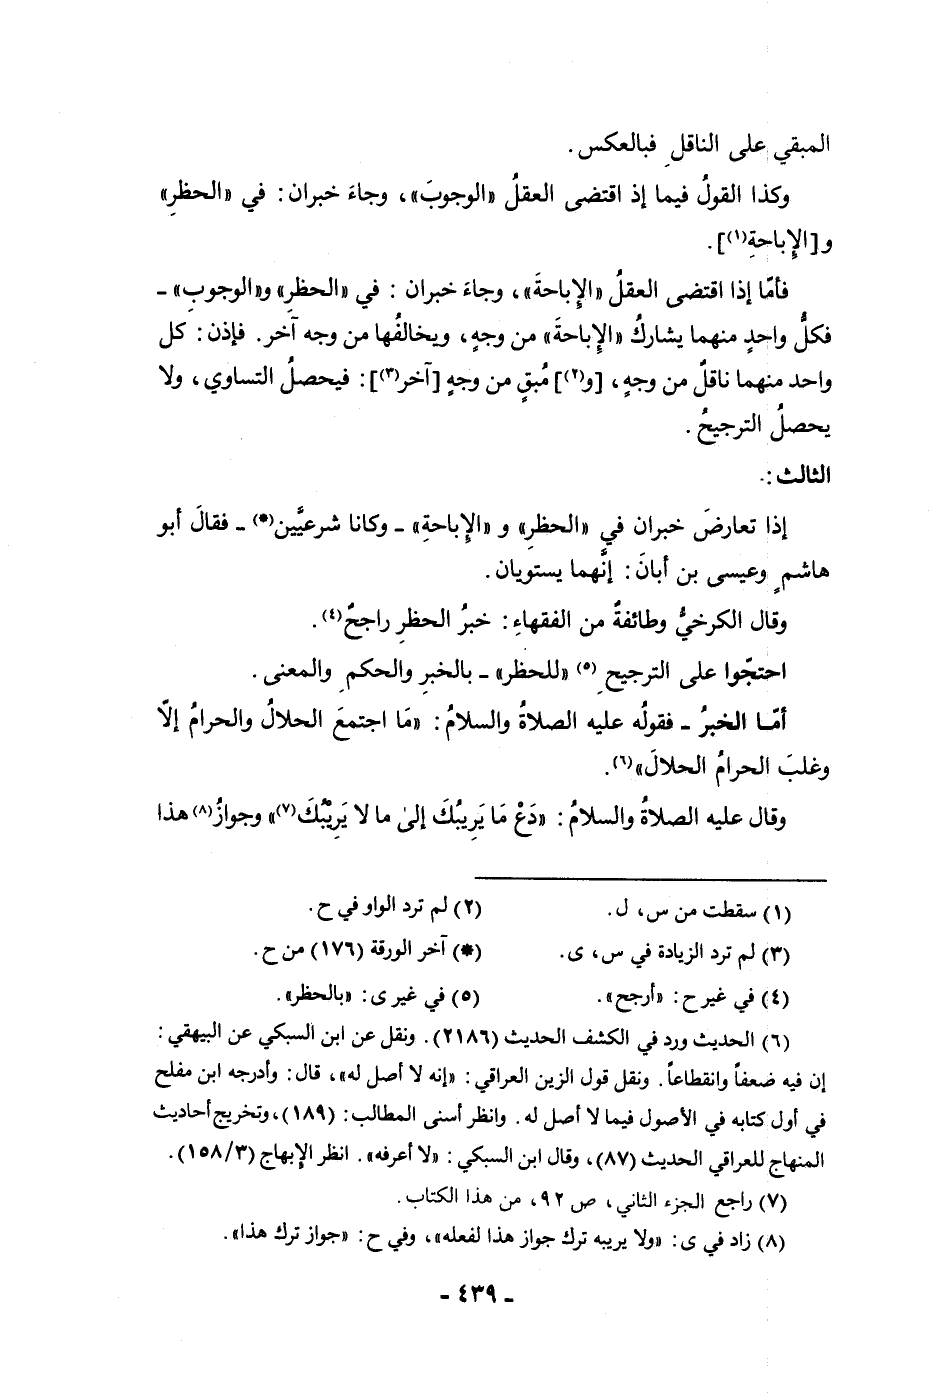 المبقي على الناقلِ فبالعكس.
وكذا القولُ فيما إذ اقتضى العقلُ «الوجوبَ»، وجاءَ خبران: في «الحظرِ»
و[الإِباحةِ(١)].
فأمّا إذا اقتضى العقلُ «الإِباحةَ»، وجاءَ خبران: في «الحظرِ» و«الوجوبِ» ـ
فكلُّ واحدٍ منهما يشاركُ «الإِباحةَ» من وجهٍ، ويخالفُها من وجه آخر. فإذن: كل
واحد منهما ناقلٌ من وجهٍ، [و(٢)] مُبقٍ من وجهٍ [آخر(٣)]: فيحصلُ التساوي، ولا
يحصلُ الترجيحُ.
الثالث:
إذا تعارضَ خبران في «الحظرِ» و «الإِباحةِ» ـ وكانا شرعيَّين(*) ـ فقالَ أبو
هاشمٍ وعيسى بن أبانَ: إنَّهما يستويان.
وقال الكرخيُّ وطائفةٌ من الفقهاءِ: خبرُ الحظرِ راجحٌ(٤).
احتجّوا على الترجيحِ (٥) «للحظر» ـ بالخبرِ والحكمِ والمعنى.
أمّا الخبرُ ـ فقولُه عليه الصلاةُ والسلامُ: «مَا اجتمعَ الحلالُ والحرامُ إلّا
وغلبَ الحرامُ الحلالَ»(٦).
وقال عليه الصلاةُ والسلامُ: «دَعْ مَا يَرِيبُكَ إلىٰ ما لا يَرِيْبُكَ(٧)» وجوازُ(٨) هذا
(١) سقطت من س، ل.
(٢) لم ترد الواو في ح.
(٣) لم ترد الزيادة في س، ى.
(*) آخر الورقة (١٧٦) من ح.
(٤) في غير ح: «أرجح».
(٥) في غير ى: «بالحظر».
(٦) الحديث ورد في الكشف الحديث (٢١٨٦). ونقل عن ابن السبكي عن البيهقي:
إن فيه ضعفاً وانقطاعاً. ونقل قول الزين العراقي: «إنه لا أصل له»، قال: وأدرجه ابن مفلح
في أول كتابه في الأصول فيما لا أصل له. وانظر أسنى المطالب: (١٨٩)، وتخريج أحاديث
المنهاج للعراقي الحديث (٨٧)، وقال ابن السبكي: «لا أعرفه». انظر الإِبهاج (١٥٨/٣).
(٧) راجع الجزء الثاني، ص ٩٢، من هذا الكتاب.
(٨) زاد في ى: «ولا يريبه ترك جواز هذا لفعله»، وفي ح: «جواز ترك هذا».
ـ ٤٣٩ ـ